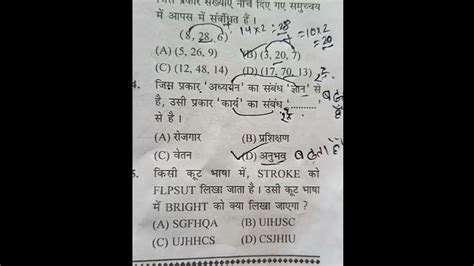 जिस प्रकार संख्याएँ नीचे दिए गए समुच्चय
में आपस में संबंधित हैं।
(8, 28, 6) 14x2=28
=10x2
=20
(A) (5, 26, 9) (B) (3, 20, 7)
(C) (12, 48, 14) (D) (17, 70, 13)
4. जिस प्रकार 'अध्ययन' का संबंध 'ज्ञान' से
है, उसी प्रकार 'कार्य' का संबंध '............'
से है।
(A) रोजगार (B) प्रशिक्षण
(C) वेतन (D) अनुभव
5. किसी कूट भाषा में, STROKE को
FLPSUT लिखा जाता है। उसी कूट भाषा
में BRIGHT को क्या लिखा जाएगा ?
(A) SGFHQA (B) UIHJSC
(C) UJHHCS (D) CSJHIU